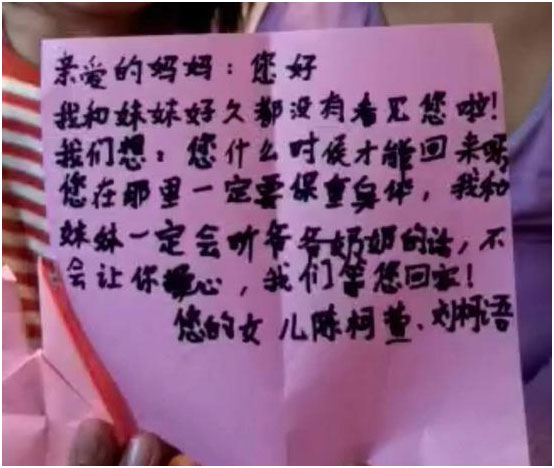 亲爱的妈妈：您好
我和妹妹好久都没有看见您啦！
我们想：您什么时候才能回来呀
您在那里一定要保重身体，我和
妹妹一定会听爷爷奶奶的话，不
会让你心，我们等您回家！
您的女儿陈柯萱、刘柯语